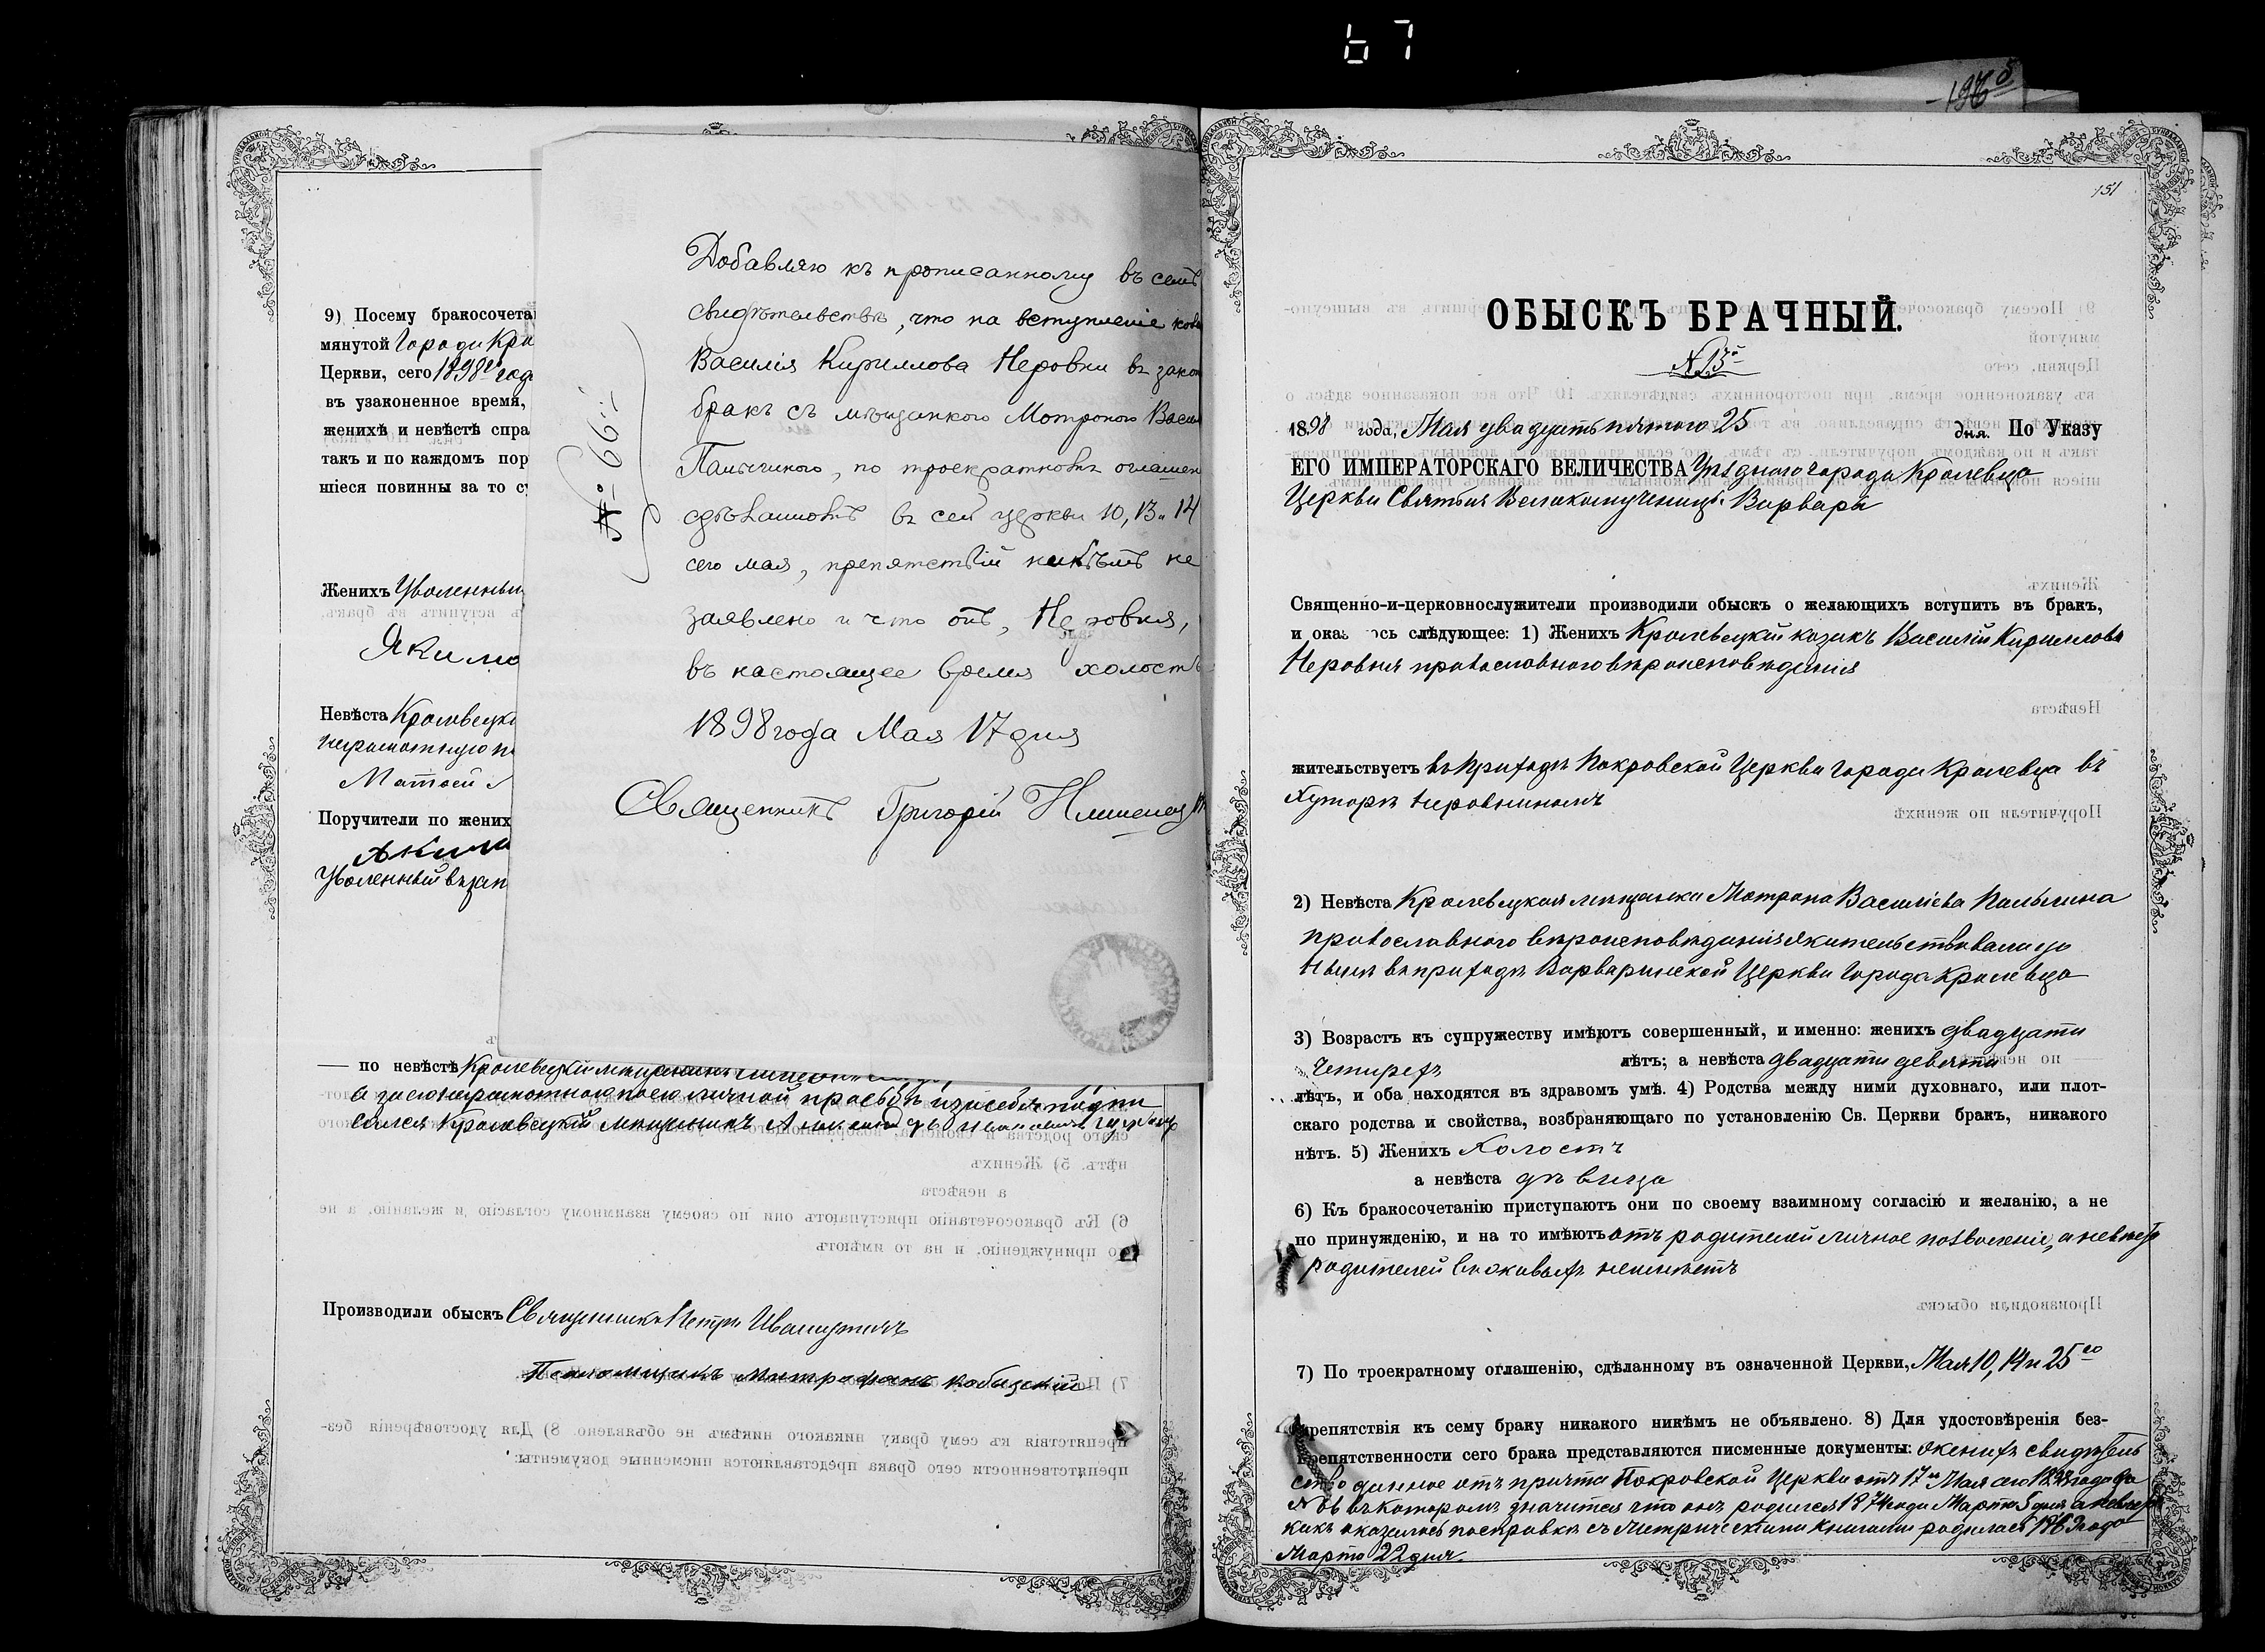 67
196
9) Посему бракосочета
мянутой Города Кро
Церкви, сего 1898 года
въ узаконенное время,
женихѣ и невѣстѣ спра
такъ и по каждомъ пор
шіеся повинны за то су
Женихъ Уволенный
Якимо
Невѣста Кролевецка
Матвей
Поручители по жених
Якимо
Уволенный въ зап
— по невѣстѣ Кролевецкій мѣщанинъ
а за неграмотного по его личной просьбѣ и за себя подпи
сался Кролевецкій мѣщанинъ
Производили обыскъ Священникъ Петръ Иваницкій
Псаломщикъ Митрофанъ Кобызскій
Добавляю къ прописанному въ семъ
свидѣтельствѣ, что на вступленіе коза
Василія Кириллова Неровни въ закон
бракъ съ мѣщанкою Мотроною Васил
Палыгиною, по троекратномъ оглашен
сдѣланномъ въ сей церкви 10, 13 и 14
сего мая, препятствій никѣмъ не
заявлено и что онъ, Неровня,
въ настоящее время холостъ
1898 года Мая 17 дня
Священникъ Григорій
№ 66
151
ОБЫСКЪ БРАЧНЫЙ.
№ 13й
1898 года, Мая двадцать пятого 25 дня. По Указу
ЕГО ИМПЕРАТОРСКАГО ВЕЛИЧЕСТВА Уѣздного города Кролевца
Церкви Святыя Великомученицы Варвары
Священно-и-церковнослужители производили обыскъ о желающихъ вступить въ бракъ,
и оказ ось слѣдующее: 1) Женихъ Кролевецкій козакъ Василій Кирилловъ
Неровня православного вѣроисповѣданія
жительствуетъ въ приходѣ Покровской Церкви города Кролевца въ
Хуторѣ Неровниномъ
2) Невѣста Кролевецкая мѣщанка Мотрона Василіева Палыгина
православного вѣроисповѣданія жительствовала до
нынѣ въ приходѣ Варваринской Церкви города Кролевца
3) Возрастъ къ супружеству имѣютъ совершенный, и именно: женихъ двадцати
четырехъ лѣтъ; а невѣста двадцати девяти
лѣтъ, и оба находятся въ здравомъ умѣ. 4) Родства между ними духовнаго, или плот-
скаго родства и свойства, возбраняющаго по установленію Св. Церкви бракъ, никакого
нѣтъ. 5) Женихъ Холостъ
а невѣста дѣвица
6) Къ бракосочетанію приступаютъ они по своему взаимному согласію и желанію, а не
по принужденію, и на то имѣютъ отъ родителей личное позволеніе, а невѣста
родителей въ живыхъ неимѣетъ
7) По троекратному оглашенію, сдѣланному въ означенной Церкви, Мая 10, 14 и 25го
препятствія къ сему браку никакого никѣмъ не объявлено. 8) Для удостовѣренія без-
препятственности сего брака представляются писменные документы: женихъ свидѣтель
ство данное отъ причта Покровской Церкви отъ 17го Мая сего 1898 года за
№ 66 въ которомъ значится что онъ родился 1874 года Марта 5 дня а невѣста
какъ оказалось по справкѣ съ Метрическими Книгами родилась 1869 года
Марта 22 дня.